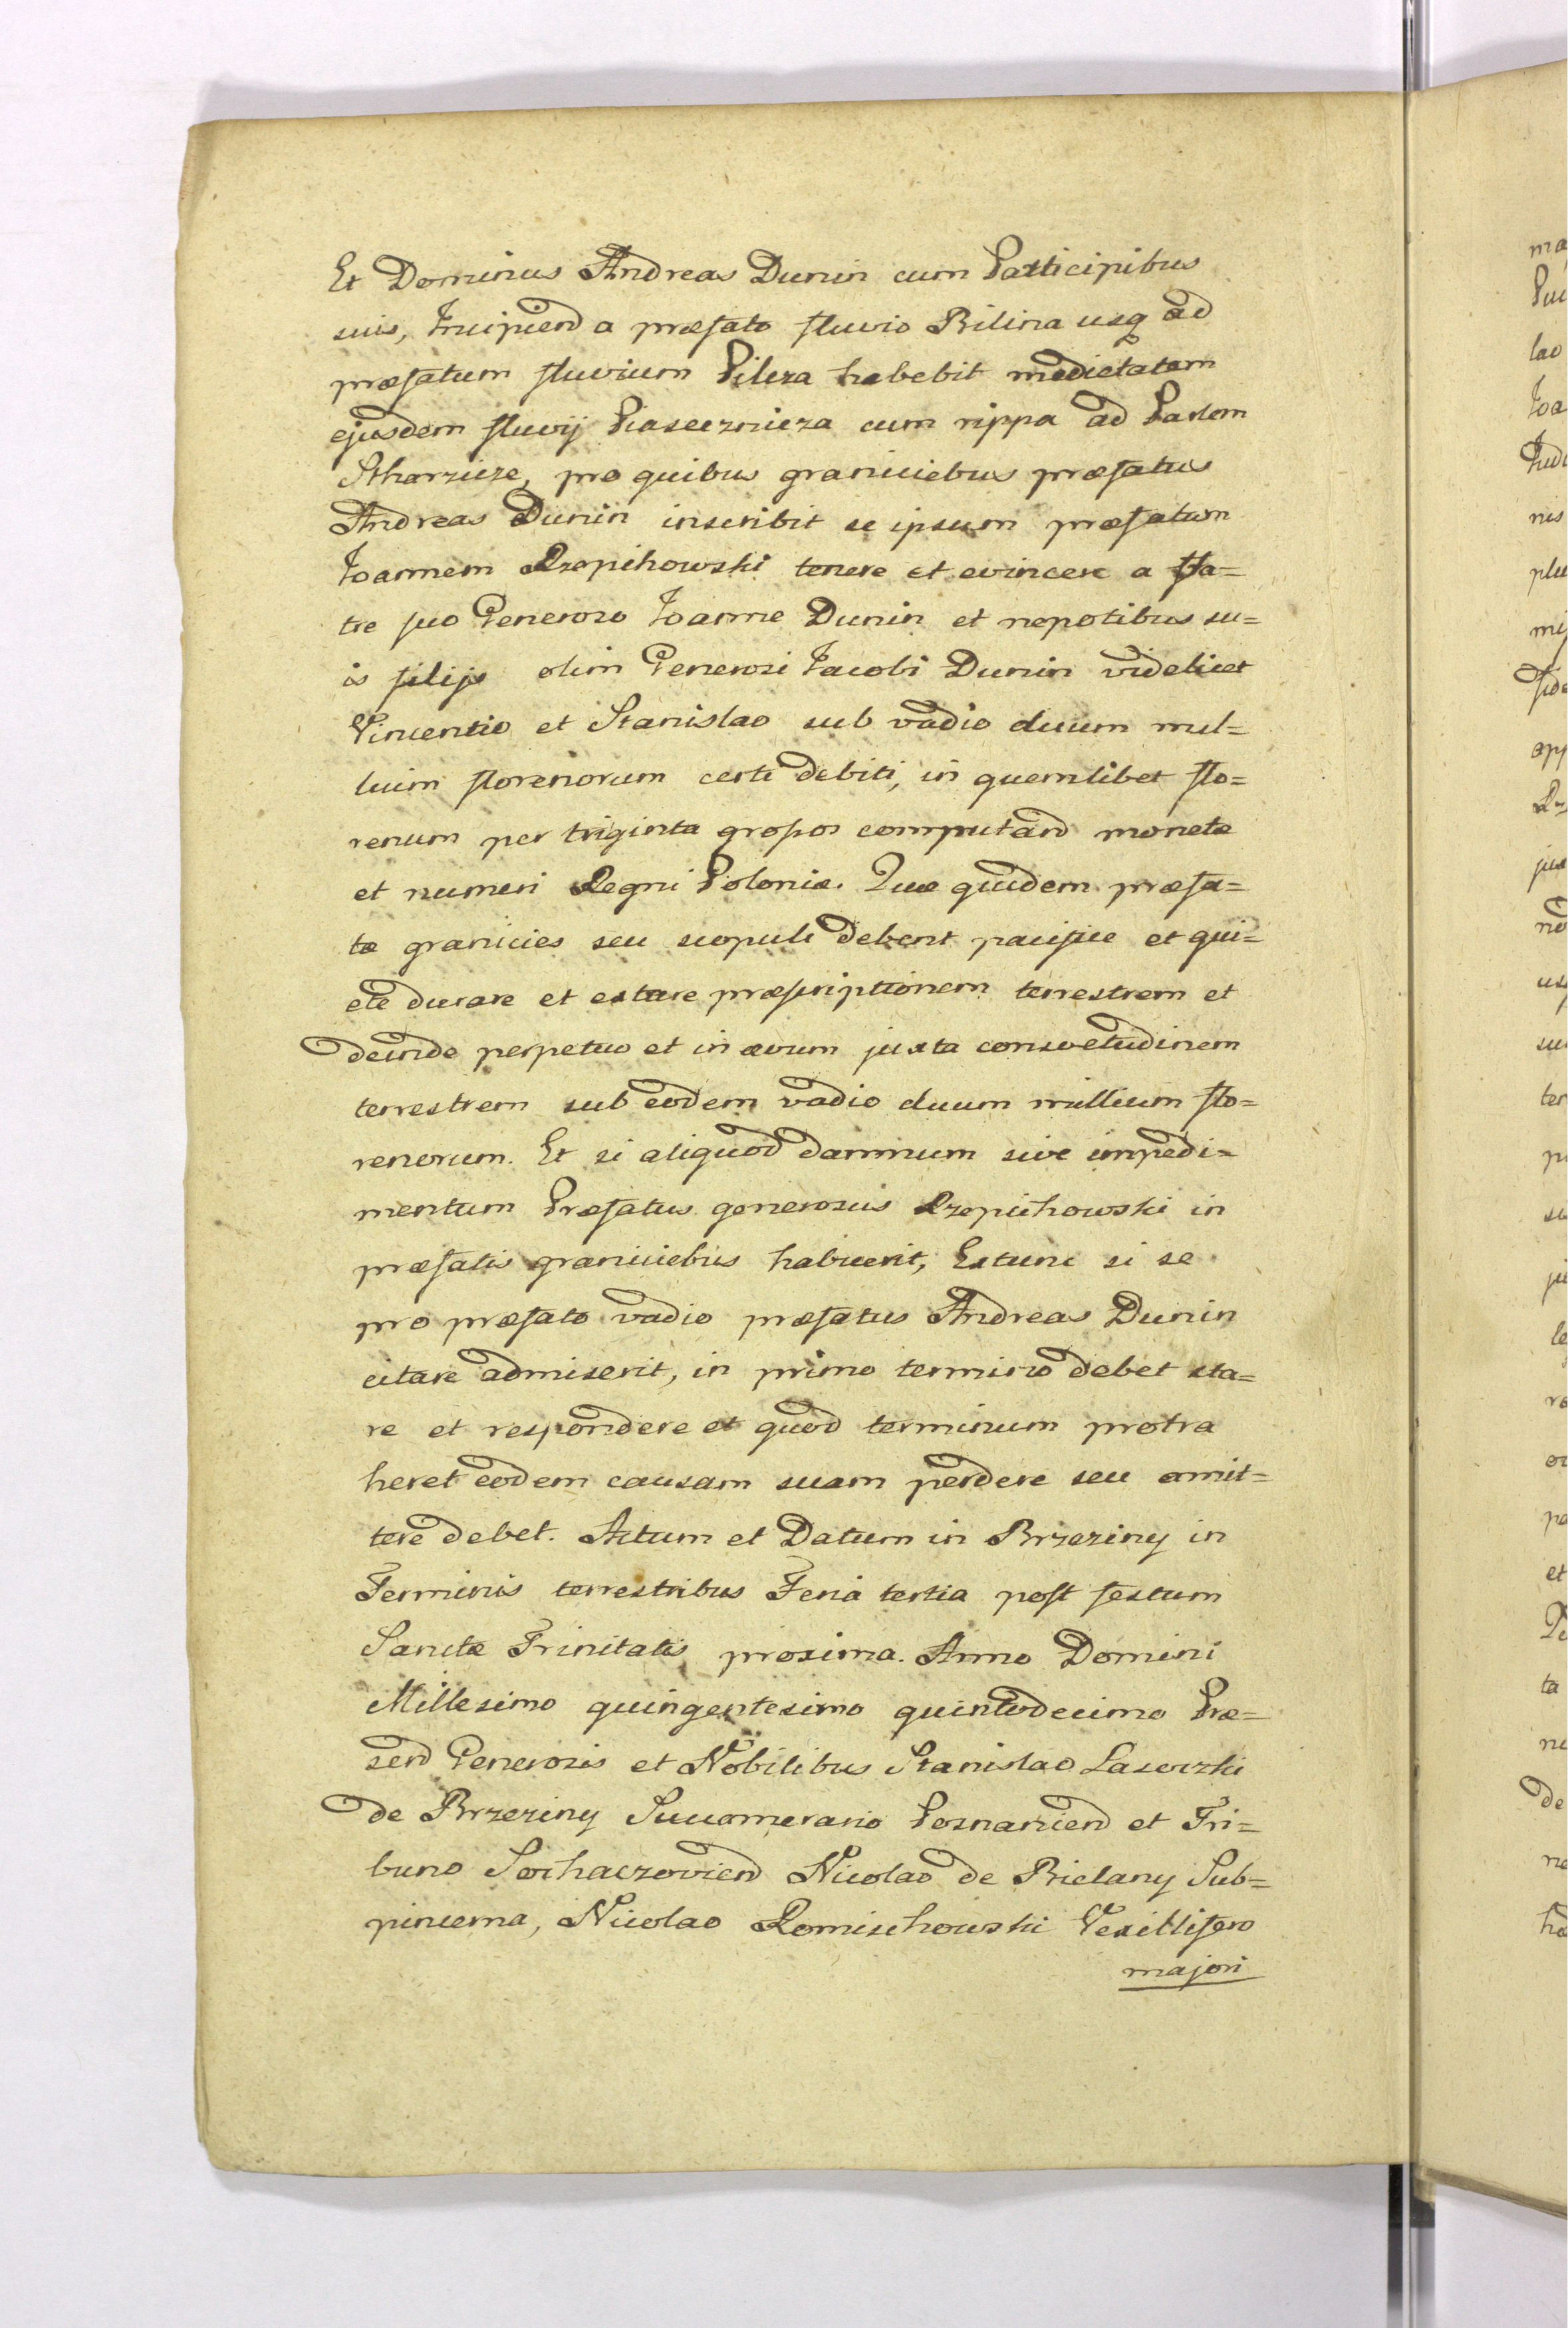 Et Dominus Andreas Dunin cum Participibus
suis, Incipiend a præfato fluvio Bilina usq ad
præfatum fluvium Pilcza habebit medietatem
ejusdem fluvij Piasecznicza cum rippa ad Partem
Stharzicze, pro quibus graniciebus præfatus
Andreas Dunin inscribit se ipsum præfatum
Joannem Rzepihowski tenere et evincere a fra=
tre suo Generoso Joanne Dunin et nepotibus su=
is filijs olim Generosi Jacobi Dunin videlicet
Vincentio et Stanislao sub vadio duum mil=
luim florenorum certi debiti, in quemlibet flo=
renum per triginta grosos computand monetæ
et numeri Regni Poloniæ. Quæ quidem præfa=
tæ granicies seu scopuli debent pacifice et qui=
ete durare et extare præscriptionem terrestrem et
deinde perpetuo et in ævum juxta consvetudinem
terrestrem sub eodem vadio duum millium flo=
renorum. Et si aliquod damnum sive impedi=
mentum Præfatus generosus Rzepichowski in
præfatis graniciebus habuerit, Extunc si se
pro præfato vadio præfatus Andreas Dunin
citare admiserit, in primo termino debet sta=
re et respondere et quod terminum protra
heret eodem causam suam perdere seu amit=
tere debet. Actum et Datum in Brzeziny in
Terminis terrestribus Feria tertia post festum
Sanctæ Trinitatis proxima. Anno Domini
Millesimo quingentesimo quintodecimo Præ=
send Generosis et Nobilibus Stanislao Lasoczki
de Brzeziny Succamerario Posnaniend et Tri=
buno Sochaczoviend Nicolao de Bielany Sub=
pincerna, Nicolao Romischowski Vexillifero
majori